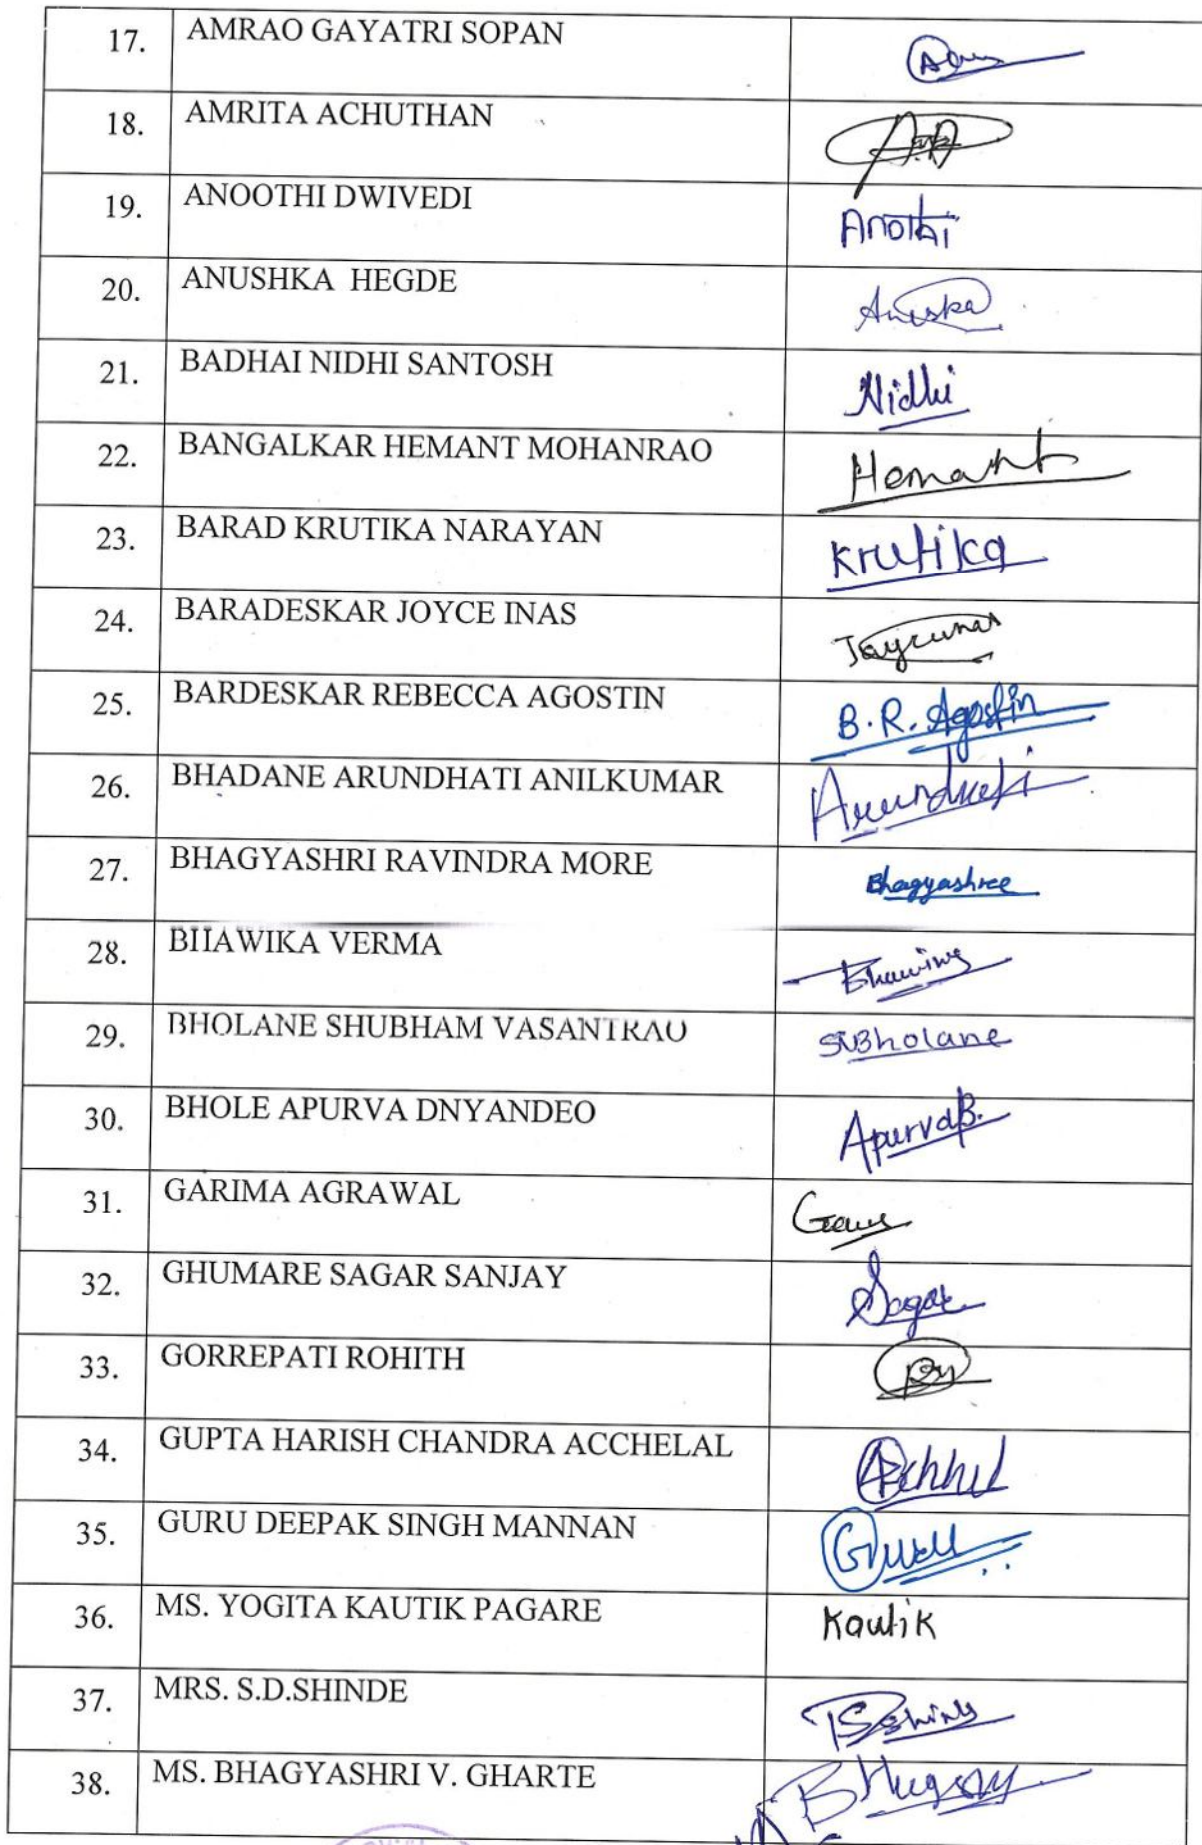 17. AMRAO GAYATRI SOPAN
18. AMRITA ACHUTHAN
19. ANOOTHI DWIVEDI Anothi
20. ANUSHKA HEGDE Anuska
21. BADHAI NIDHI SANTOSH Nidhi
22. BANGALKAR HEMANT MOHANRAO Hemant
23. BARAD KRUTIKA NARAYAN Krutika
24. BARADESKAR JOYCE INAS
25. BARDESKAR REBECCA AGOSTIN B.R. Agostin
26. BHADANE ARUNDHATI ANILKUMAR Arundhati
27. BHAGYASHRI RAVINDRA MORE Bhagyashree
28. BHAWIKA VERMA
29. BHOLANE SHUBHAM VASANTRAO SVBholane
30. BHOLE APURVA DNYANDEO ApurvaB.
31. GARIMA AGRAWAL
32. GHUMARE SAGAR SANJAY Sagar
33. GORREPATI ROHITH
34. GUPTA HARISH CHANDRA ACCHELAL
35. GURU DEEPAK SINGH MANNAN
36. MS. YOGITA KAUTIK PAGARE Kautik
37. MRS. S.D.SHINDE
38. MS. BHAGYASHRI V. GHARTE